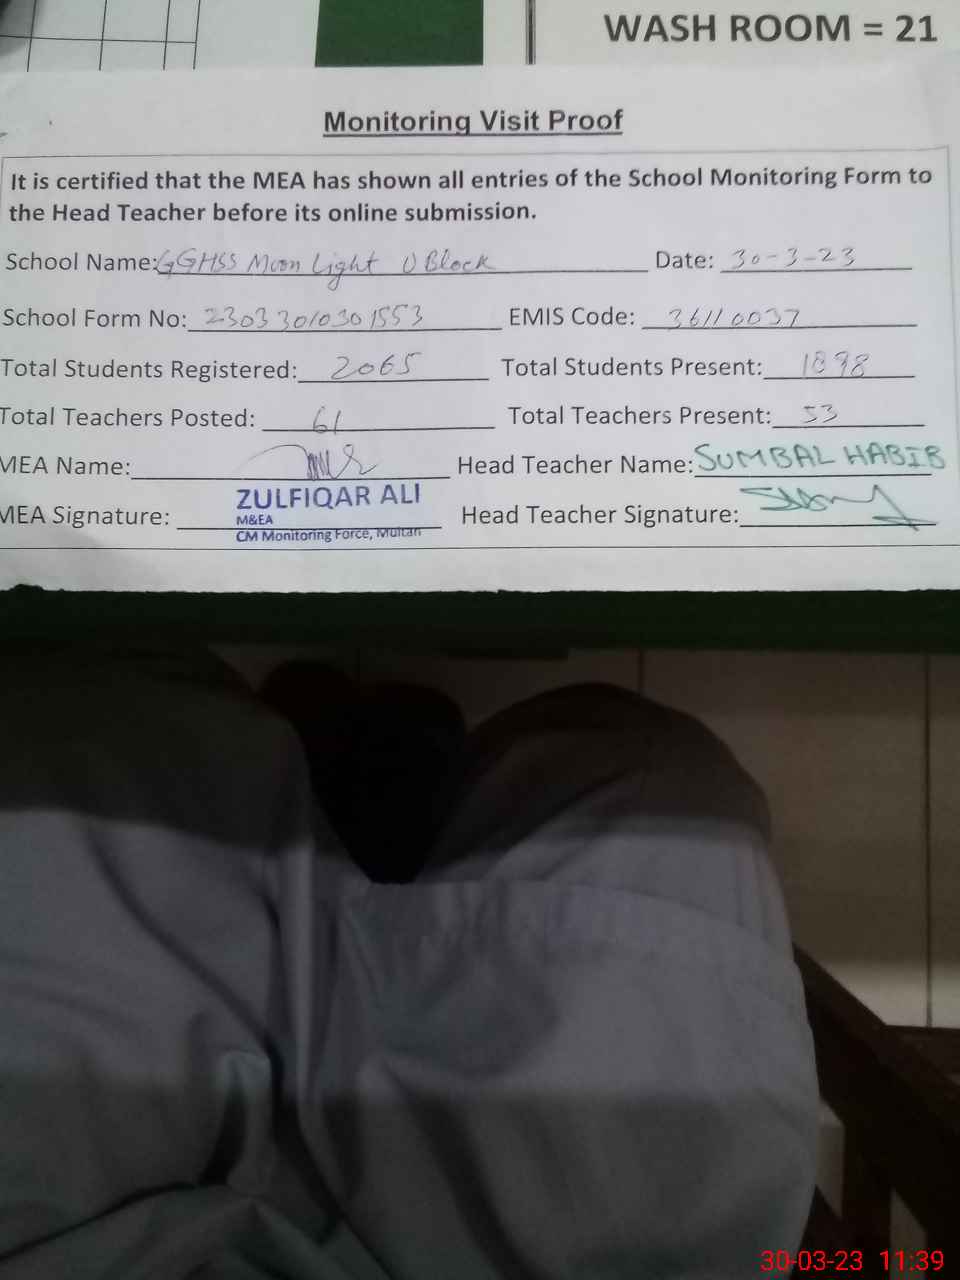 WASH ROOM = 21
Monitoring Visit Proof
It is certified that the MEA has shown all entries of the School Monitoring Form to
the Head Teacher before its online submission.
School Name: GGHSS Moon Light U Block Date: 30-3-23
School Form No: 2303301030 1553 EMIS Code: 36110037
Total Students Registered: 2065 Total Students Present: 1898
Total Teachers Posted: 61 Total Teachers Present: 53
MEA Name: Head Teacher Name: SUMBAL HABIB
ZULFIQAR ALI
M&EA
MEA Signature: Head Teacher Signature:
CM Monitoring Force, Multan
30-03-23 11:39